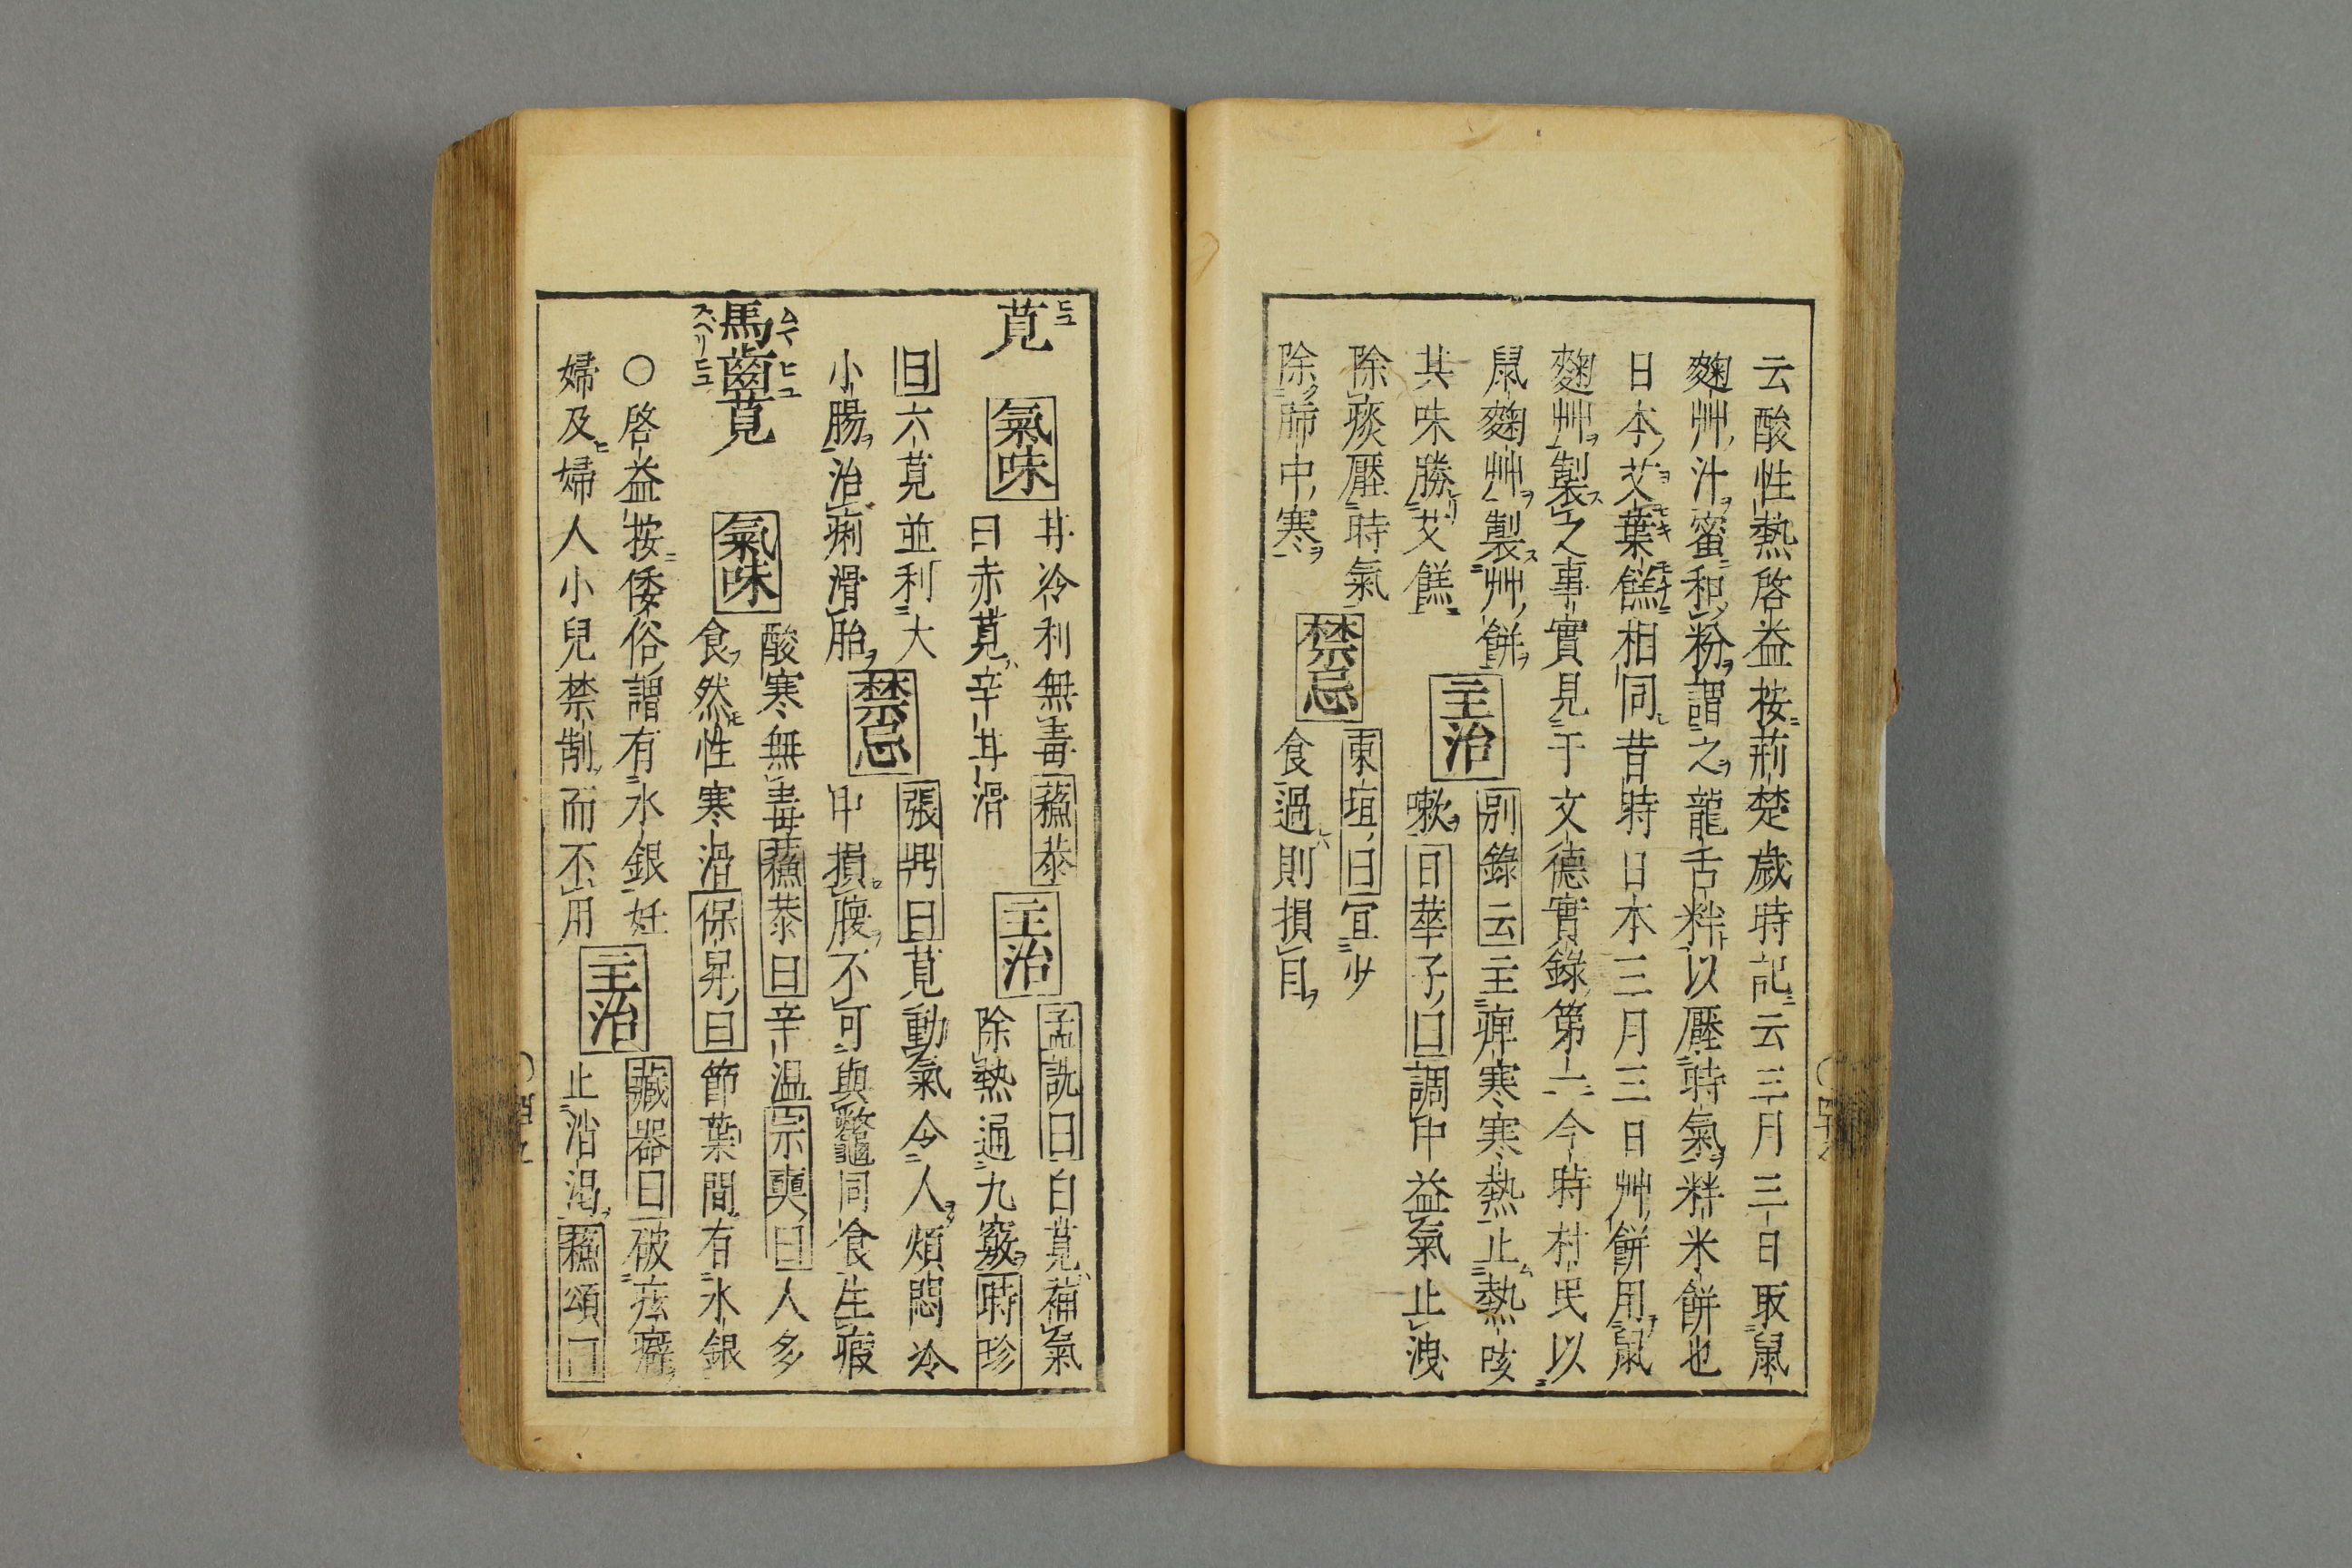 云酸性熱啓益按荊楚歲時記云三月三日取鼠
麴艸汁蜜和粉謂之龍舌料以壓時氣料米餅也
日本艾葉餻相同昔時日本三月三日艸餅用鼠
麴艸製之事實見于文德實錄第一今時村民以
鼠麴艸製艸餅
主治
別錄云主痺寒寒熱止熱咳
其味勝艾餻
嗽日華子曰調中益氣止洩
除痰壓時氣
禁忌
東垣曰宜少
除肺中寒
食過則損目
莧
ヒユ
氣味
甘冷利無毒蘓恭
曰赤莧辛甘滑
主治
孟詵曰白莧補氣
除熱通九竅時珍
曰六莧並利大
小腸治痢滑胎
禁忌
張鼎曰莧動氣令人煩悶冷
中損腹不可與鼈同食生瘕
馬齒莧
ムマ ヒユ
スベリヒユ
氣味
酸寒無毒蘓恭曰辛温宗奭曰人多
食然性寒滑保昇曰節葉間有水銀
○啓益按倭俗謂有水銀妊
婦及婦人小兒禁制而不用
主治
藏器曰破痃癖
止消渴蘓頌曰